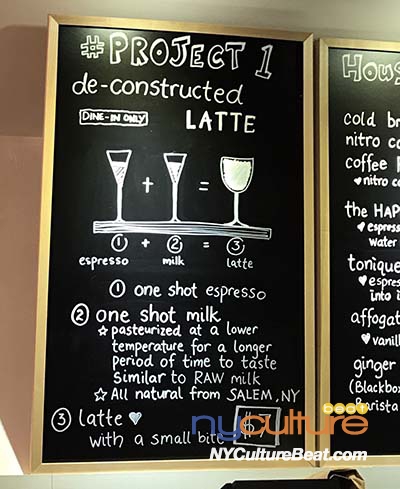 #PROJECT 1
de-constructed
DINE-IN ONLY LATTE
+ =
① + ② = ③
espresso milk latte
① one shot espresso
② one shot milk
☆ pasteurized at a lower
temperature for a longer
period of time to taste
similar to RAW milk
☆ All natural from SALEM, NY
③ latte ♥
with a small bite
#
Hous
cold br
nitro co
coffee
♥ nitro c
the HAP
♥ espres
water
tonique
♥ espre
into i
affogat
♥ vanill
ginger
(Blackbo
Barista
nyculture
beat
NYCultureBeat.com